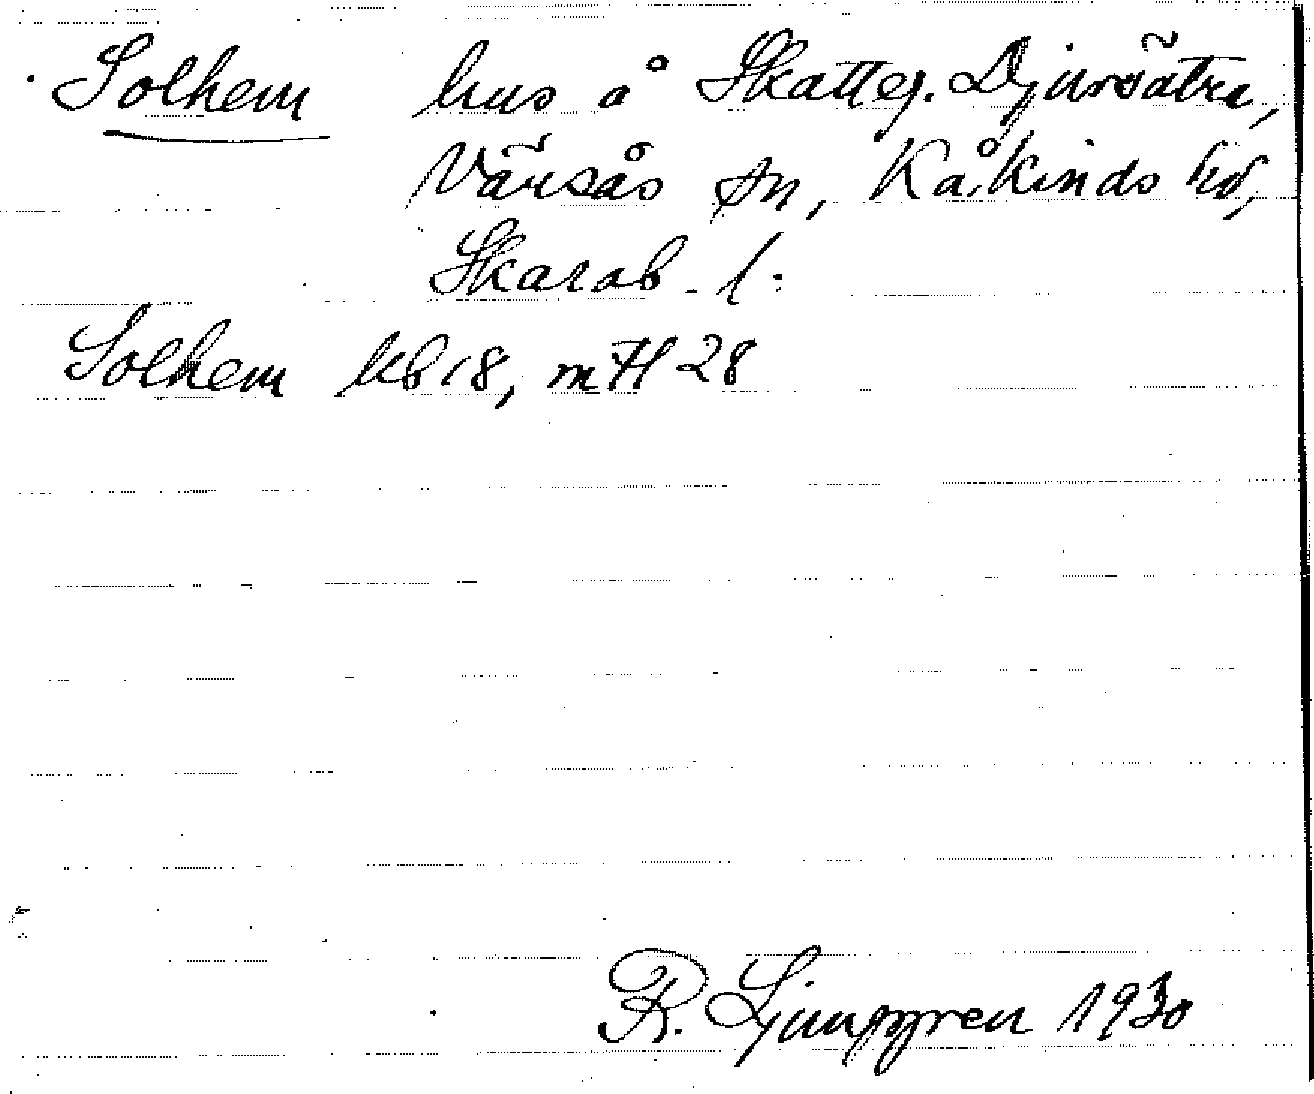 Solhem hus å Skatteg. Djursätra,
Värsås sn, Kåkinds hd,
Skarab. l:
Solhem kb 18, mH 28
R. Ljunggren 1930